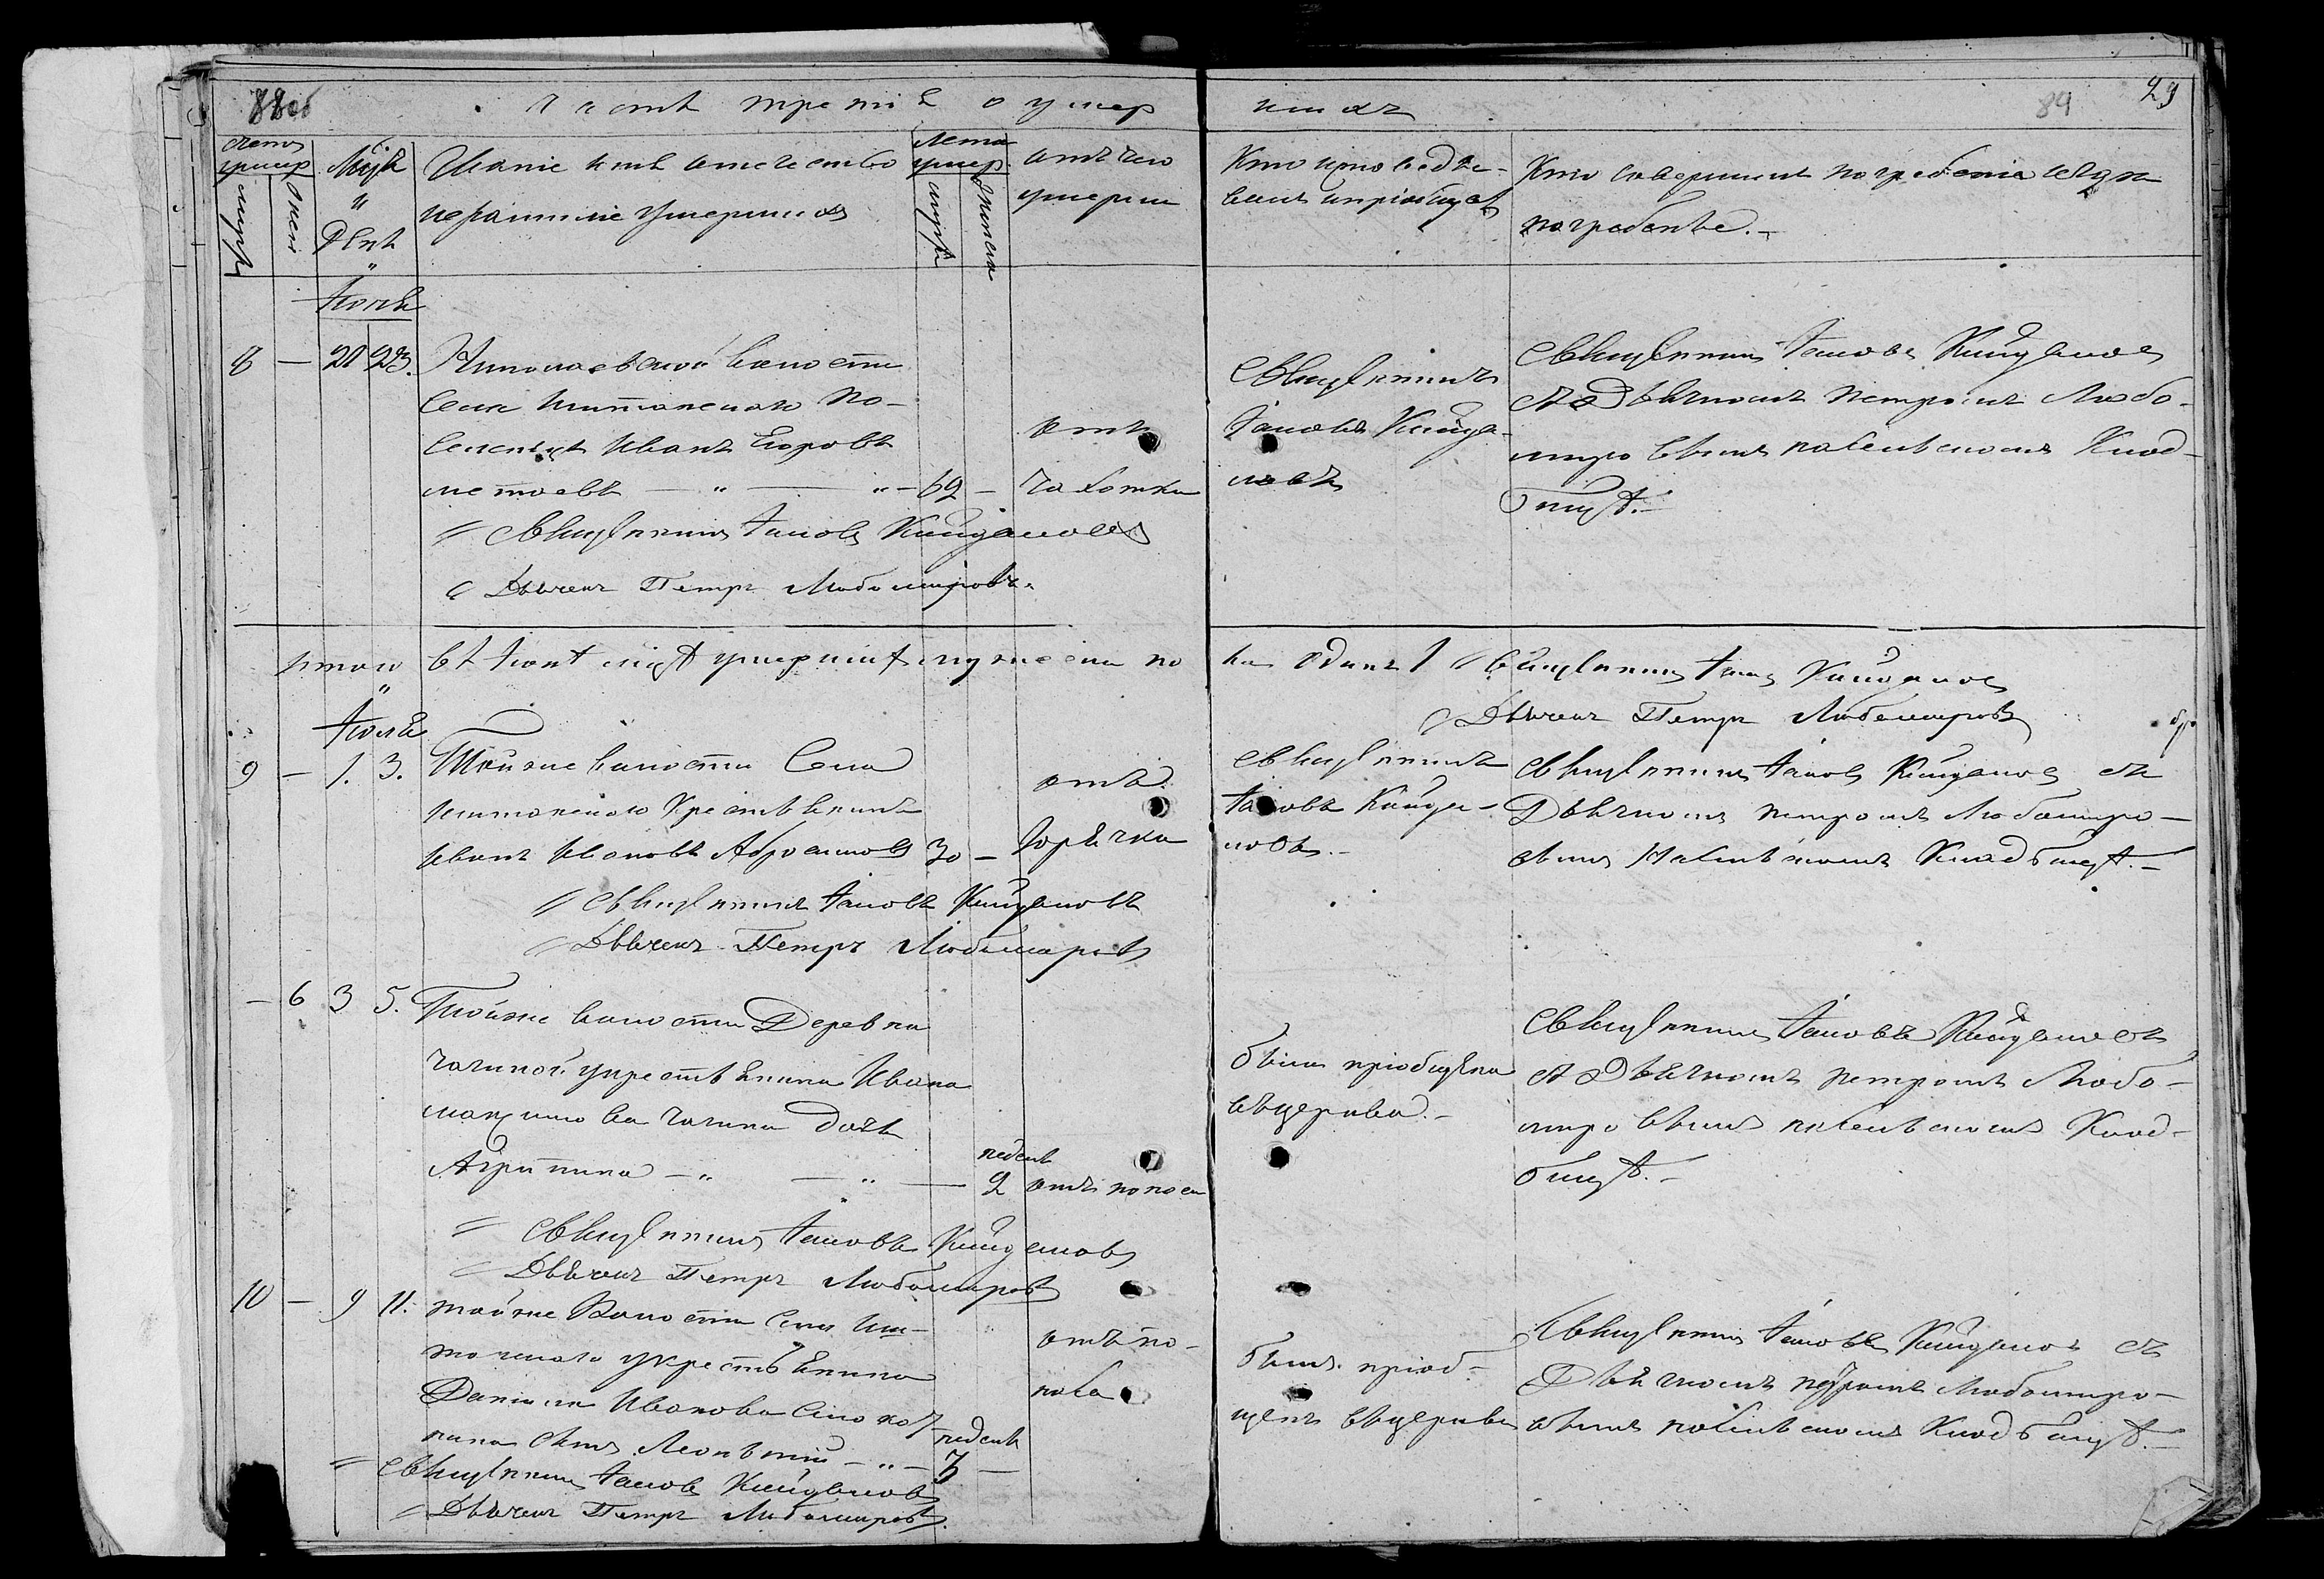 88об
Часть третія о умер
шихъ
89
29
счетъ умер
муж
жен
Мцъ и День
Званіе имя отечество
и фамиліе умершихъ
лета умер
муж
женск
отъ чего
умерли
Кто исповеды-
валъ и пріобщалъ
Кто совершилъ погребеніе и где
погребены.
Іюнь
8 — 21 23. Николаевской волости
села Шитанскаго по-
селенецъ Иванъ Егоровъ
— " — " — 62 —
отъ
чахотки
Священникъ
Іаковъ Кайда-
ловъ
Священникъ Іаковъ Кайдаловъ
съ Дьячкомъ Петромъ Любо-
мировымъ на сельскомъ Клад-
бищѣ.
Священникъ Іаковъ Кайдаловъ
Дьячекъ Петръ Любомировъ.
Итого въ Іюнѣ мцѣ умершихъ мужеска по
ла одинъ 1 Священникъ Іаковъ Кайдаловъ
Дьячекъ Петръ Любомировъ
Іюль
9 — 1. 3. Тойже волости Села
Шитанскаго Крестьянинъ
Иванъ Ивановъ Абросимовъ 30 —
отъ
горячки
Священникъ
Іаковъ Кайда-
ловъ.
Священникъ Іаковъ Кайдаловъ съ
Дьячкомъ Петромъ Любомиро-
вымъ На сельскомъ Кладбищѣ.
Священникъ Іаковъ Кайдаловъ
Дьячекъ Петръ Любомировъ
— 6 3 5. Тойже волости Деревни
Чагиной у крестьянина Ивана
Максимова Чагина дочь
Агрипина — " — " —
недель
2 отъ поноса
была пріобщена
въ церкви.
Священникъ Іаковъ Кайдаловъ
съ Дьячкомъ Петромъ Любо-
мировымъ на сельскомъ Клад-
бищѣ.
Священникъ Іаковъ Кайдаловъ
Дьячекъ Петръ Любомировъ
10 — 9 11. тойже Волости Села Ши-
танскаго у крестьянина
Данила Иванова
сынъ Леонтий — " —
недель
3 —
отъ по-
носа
былъ пріоб-
щенъ въ церкви
Священникъ Іаковъ Кайдаловъ съ
Дьячкомъ Петромъ Любомиро-
вымъ на сельскомъ Кладбищѣ.
Священникъ Іаковъ Кайдаловъ
Дьячекъ Петръ Любомировъ.